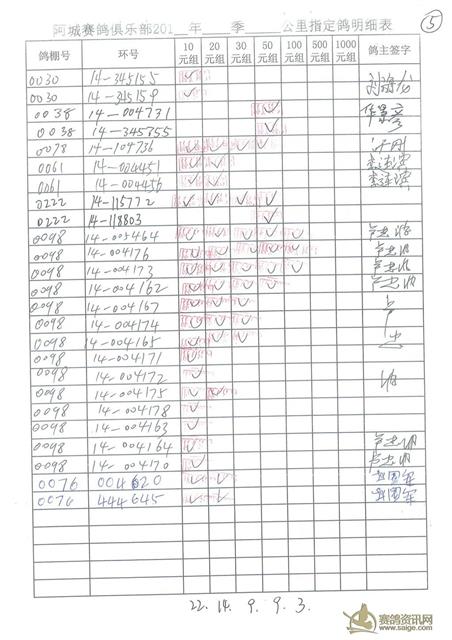 阿城赛鸽俱乐部201__年____季______公里指定鸽明细表 ⑤
鸽棚号 环号 10元组 20元组 30元组 50元组 100元组 300元组 500元组 1000元组 鸽主签字
0030 14-345155 ✓
0030 14-345159 ✓
0038 14-004731 ✓
0038 14-345755 ✓
0078 14-104736 ✓ ✓ ✓ ✓
0061 14-004451 ✓ ✓
0061 14-004456 ✓ ✓
0222 14-115772 ✓ ✓ ✓ ✓
0222 14-118803 ✓
0098 14-005464 ✓ ✓ ✓ ✓ ✓
0098 14-004176 ✓ ✓ ✓ ✓ ✓
0098 14-004173 ✓ ✓ ✓ ✓ ✓
0098 14-004162 ✓ ✓ ✓ ✓
0098 14-004167 ✓ ✓ ✓
0098 14-004174 ✓ ✓ ✓
0098 14-004165 ✓ ✓ ✓
0098 14-004171 ✓
0098 14-004172 ✓
0098 14-004175 ✓ ✓
0098 14-004178 ✓
0098 14-004163 ✓
0098 14-004164 ✓
0098 14-004170 ✓
0076 004620 ✓ ✓
0076 444645 ✓ ✓
22. 14. 9. 9. 3.
赛鸽资讯网
www.saige.com